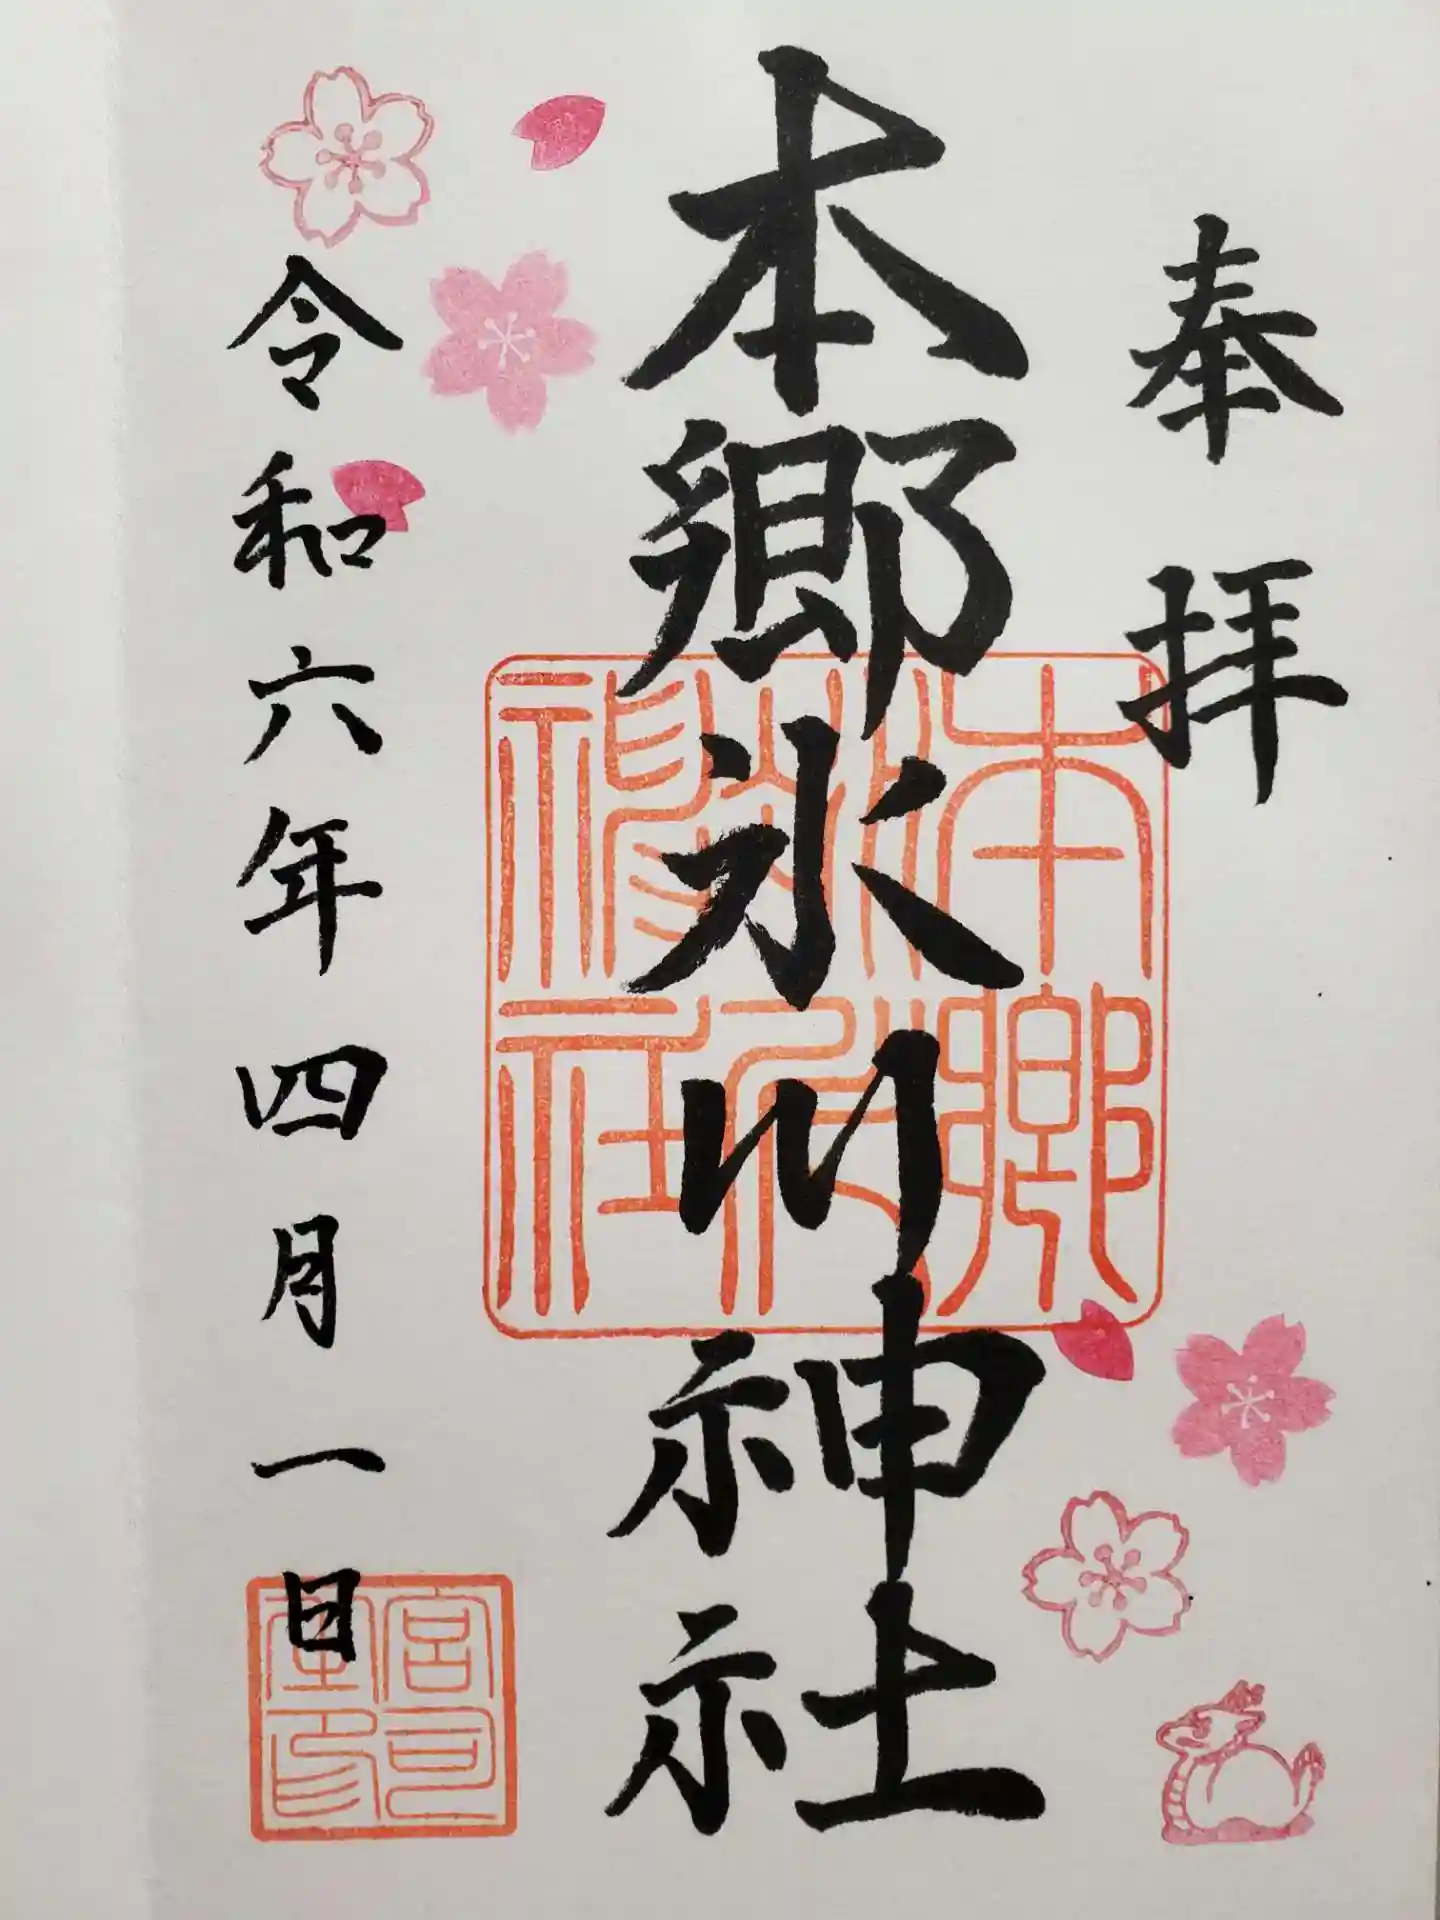 奉拝
本郷氷川神社
本郷氷川神社之印
令和六年四月一日
宮司之印